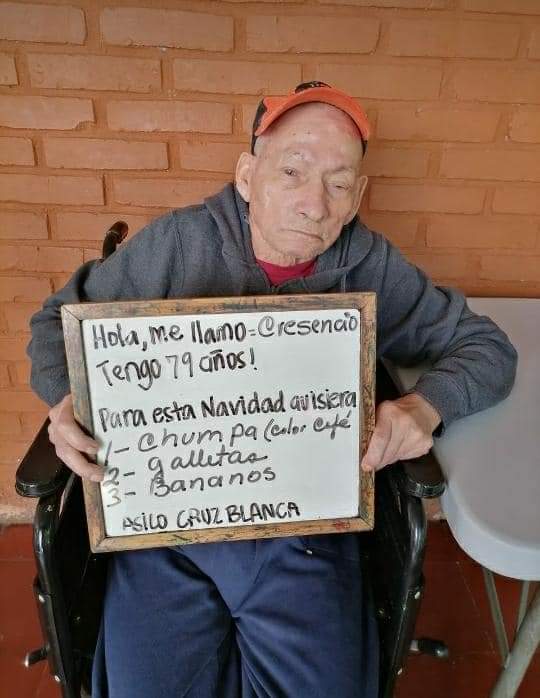 Hola, me llamo=Cresencio
Tengo 79 años!
Para esta Navidad quisiera
1- Chumpa (color café
2- galletas
3- Bananos
ASILO CRUZ BLANCA